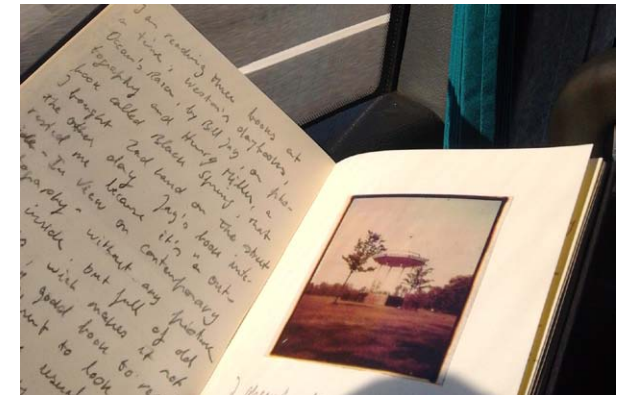 I am reading three books at
a time; Weston's daybooks,
Occam's Razor, by Bill Jay, on pho-
tography and Henry Miller, a
book called Black Spring, that
I bought 2nd hand on the street
the other day. Jay's book inte-
rested me because it's a out-
side-In View on Contemporary
tography - without any picture
inside but full of old
wich makes it not
good book to
rent to look